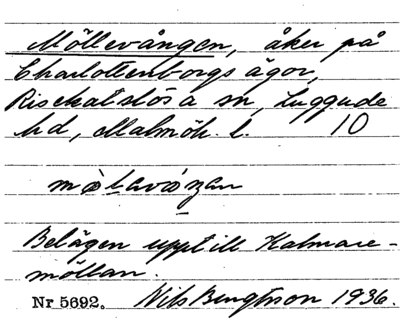 Möllevången, åker på
Charlottenborgs ägor,
Risekatslösa sn, Luggude
hd, Malmöh. l. 10
Belägen upptill Kalmare-
möllan.
Nr 5692. Nils Bengtsson 1936.